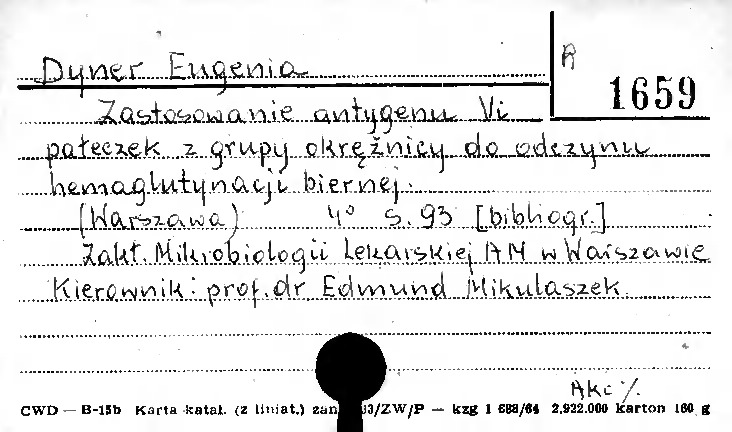 Dyner Eugenia
A
1659
Zastosowanie antygenu Vi
pałeczek z grupy okrężnicy do odczynu
hemaglutynacji biernej.
(Warszawa) 4° s. 93 [bibliogr.]
Zakł. Mikrobiologii Lekarskiej AM w Warszawie
Kierownik: prof. dr Edmund Mikulaszek.
Akc
CWD — B-15b Karta katal. (z liniat.) zam 3/ZW/P — kzg 1 688/64 2.922.000 karton 160 g